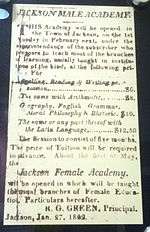 JACKSON MALE ACADEMY.
THIS Academy will be opened in
the Town of Jackson, on the 1st
Monday in February next, under the
superintendence of the subscriber who
proposes to teach most of the branches
of learning, usually taught in institu-
tions of the kind, at the following pri-
ces: For
Spelling, Reading & Writing per
session,
The same with Arithmetic,
Geography, English Grammar,
Moral Philosophy & Rhetoric,
The same or any part thereof with
the Latin Language,
The Session to consist of five months.
The price of Tuition will be required
in advance. About the first of May,
the
Jackson Female Academy,
will be opened in which will be taught
the usual branches of Female Educa-
tion. Particulars hereafter.
GREEN, Principal.
Jackson, Jan. 27,